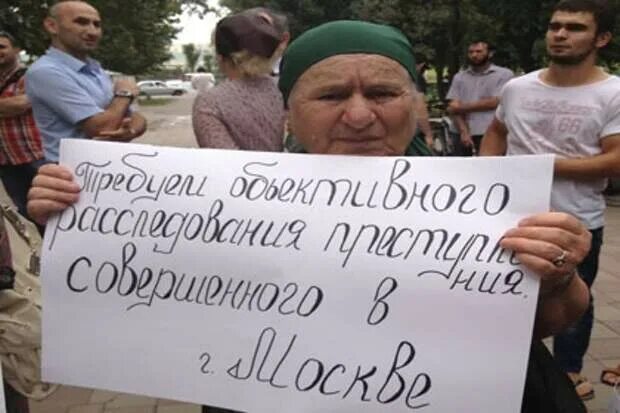 Требуем объективного
расследования преступле
ния.
совершенного в
г. Москве
66